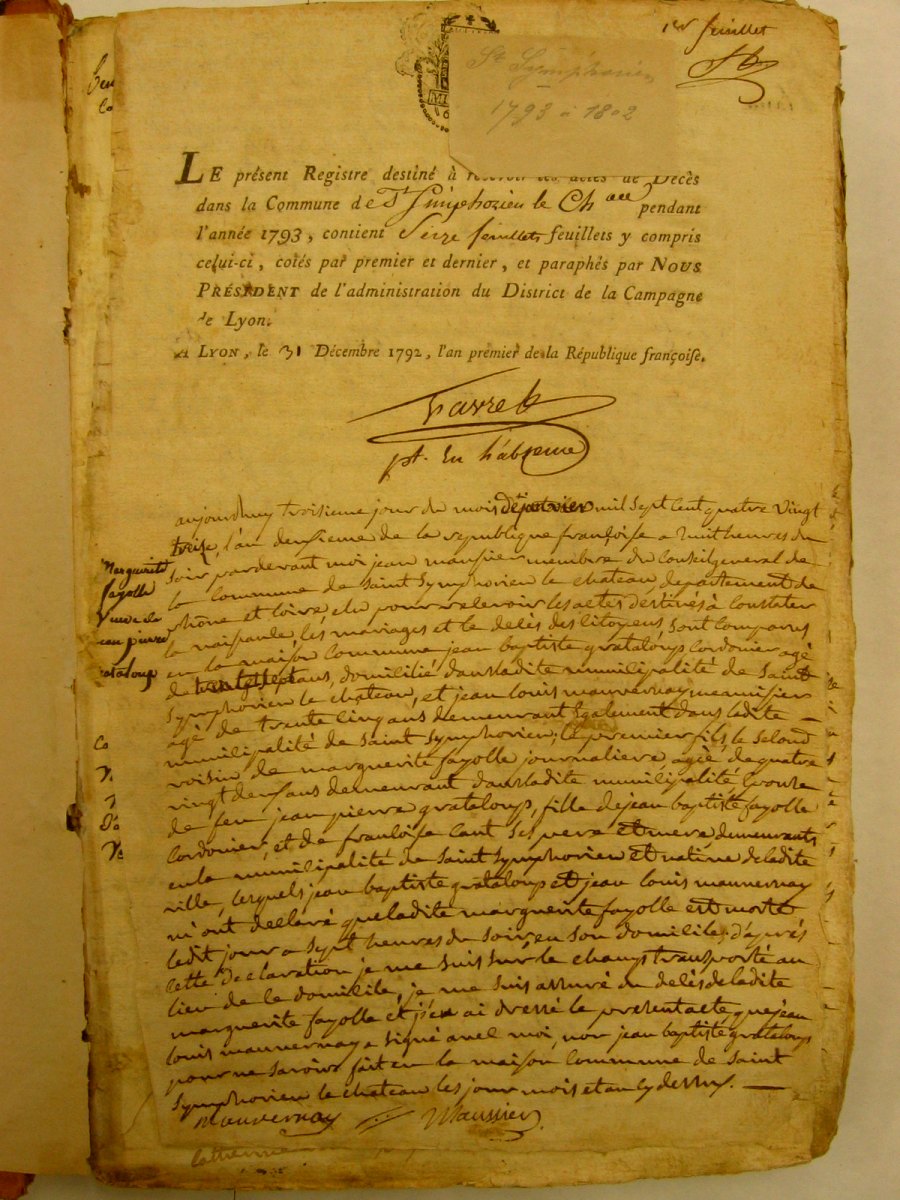 1er feuillet
St Symphorien
1793 à 1802
LE présent Registre destiné à recevoir les actes de Décès
dans la Commune de St Simphorien le Chau pendant
l'année 1793, contient Seize feuillets feuillets y compris
celui-ci, cotés par premier et dernier, et paraphés par NOUS
PRÉSIDENT de l'administration du District de la Campagne
de Lyon.
A LYON, le 31 Décembre 1792, l'an premier de la République françoise.
pt. En l'absence
aujourdhuy troisieme jour du mois de janvier mil sept cent quatre vingt
treise, l'an deusieme de la republique françoise a huit heures du
soir pardevant moi jean maussier membre du Conseil general de
la Commune de Saint Symphorien le chateau, departement de
rhône et loire elu pour relevoir les actes destinés à Constater
la naissance, les mariages et le decès des Citoyens, sont Comparus
en la maison Commune jean baptiste grataloup Cordonier agé
de trente sept ans, domicilié dans ladite municipalité de Saint
Symphorien le chateau, et jean louis mauvernay menuisier
agé de trente cinq ans demeurant Egalement dans ladite
municipalité de Saint Symphorien; le premier fils, le second
voisin de marguerite fayolle journaliere, agée de quatre
vingt deux ans demeurant dans ladite municipalité Epouse
de feu jean pierre grataloup, fille de jean baptiste fayolle
Cordonier, et de françoise Ses pere et mere demeurants
en la municipalité de Saint Symphorien et native de ladite
ville, lesquels jean baptiste grataloup et jean louis mauvernay
m'ont declaré que ladite marguerite fayolle est morte
ledit jour a sept heures du soir en son domicile; d'après
cette declaration je me suis sur le champs transporté au
lieu de le domicile, je me suis assuré du decès de ladite
marguerite fayolle et j'en ai dressé le present acte que jean
louis mauvernay a signé avec moi, non jean baptiste grataloup
pour ne savoir fait en la maison Commune de Saint
Symphorien le chateau les jour mois et an cy dessus.
Mauvernay Maussier
Marguerite
fayolle
Veuve de
jean pierre
grataloup
Catherine